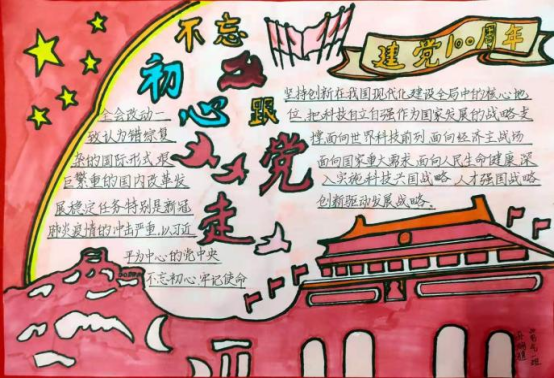 不忘
初心
跟党
走
建党100周年
全会改动一
致认为错综复
杂的国际形式艰
巨繁重的国内改革发
展稳定任务特别是新冠
肺炎疫情的冲击严重,以习近
平为中心的党中央
不忘初心牢记使命
坚持创新在我国现代化建设全局中的核心地
位,把科技自立自强作为国家发展的战略支
撑面向世界科技前列,面向经济主战场
面向国家重大需求,面向人民生命健康,深
入实施科技大国战略,人才强国战略
创新驱动发展战略.